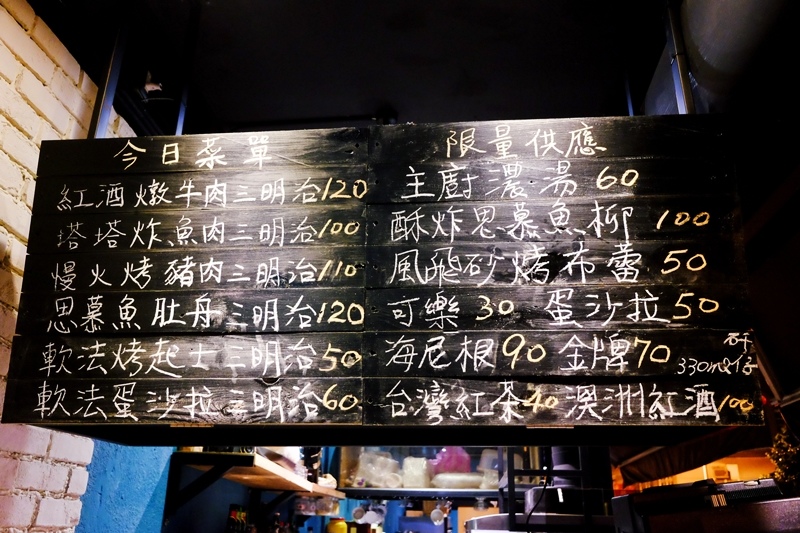 今日菜單
紅酒燉牛肉三明治120
塔塔炸魚肉三明治100
慢火烤豬肉三明治110
思慕魚肚丹三明治120
軟法烤起士三明治50
軟法蛋沙拉三明治60
限量供應
主廚濃湯 60
酥炸思慕魚柳 100
風飛砂烤布蕾 50
可樂 30 蛋沙拉 50
海尼根 90 金牌 70
330ml
台灣紅茶 40 澳洲紅酒 100